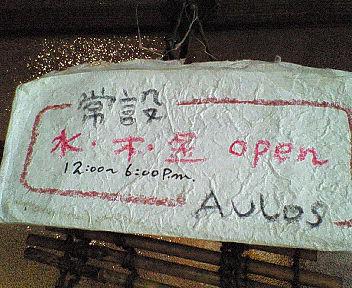 常設
水・木・金 open
12:00~6:00P.m.
AULos